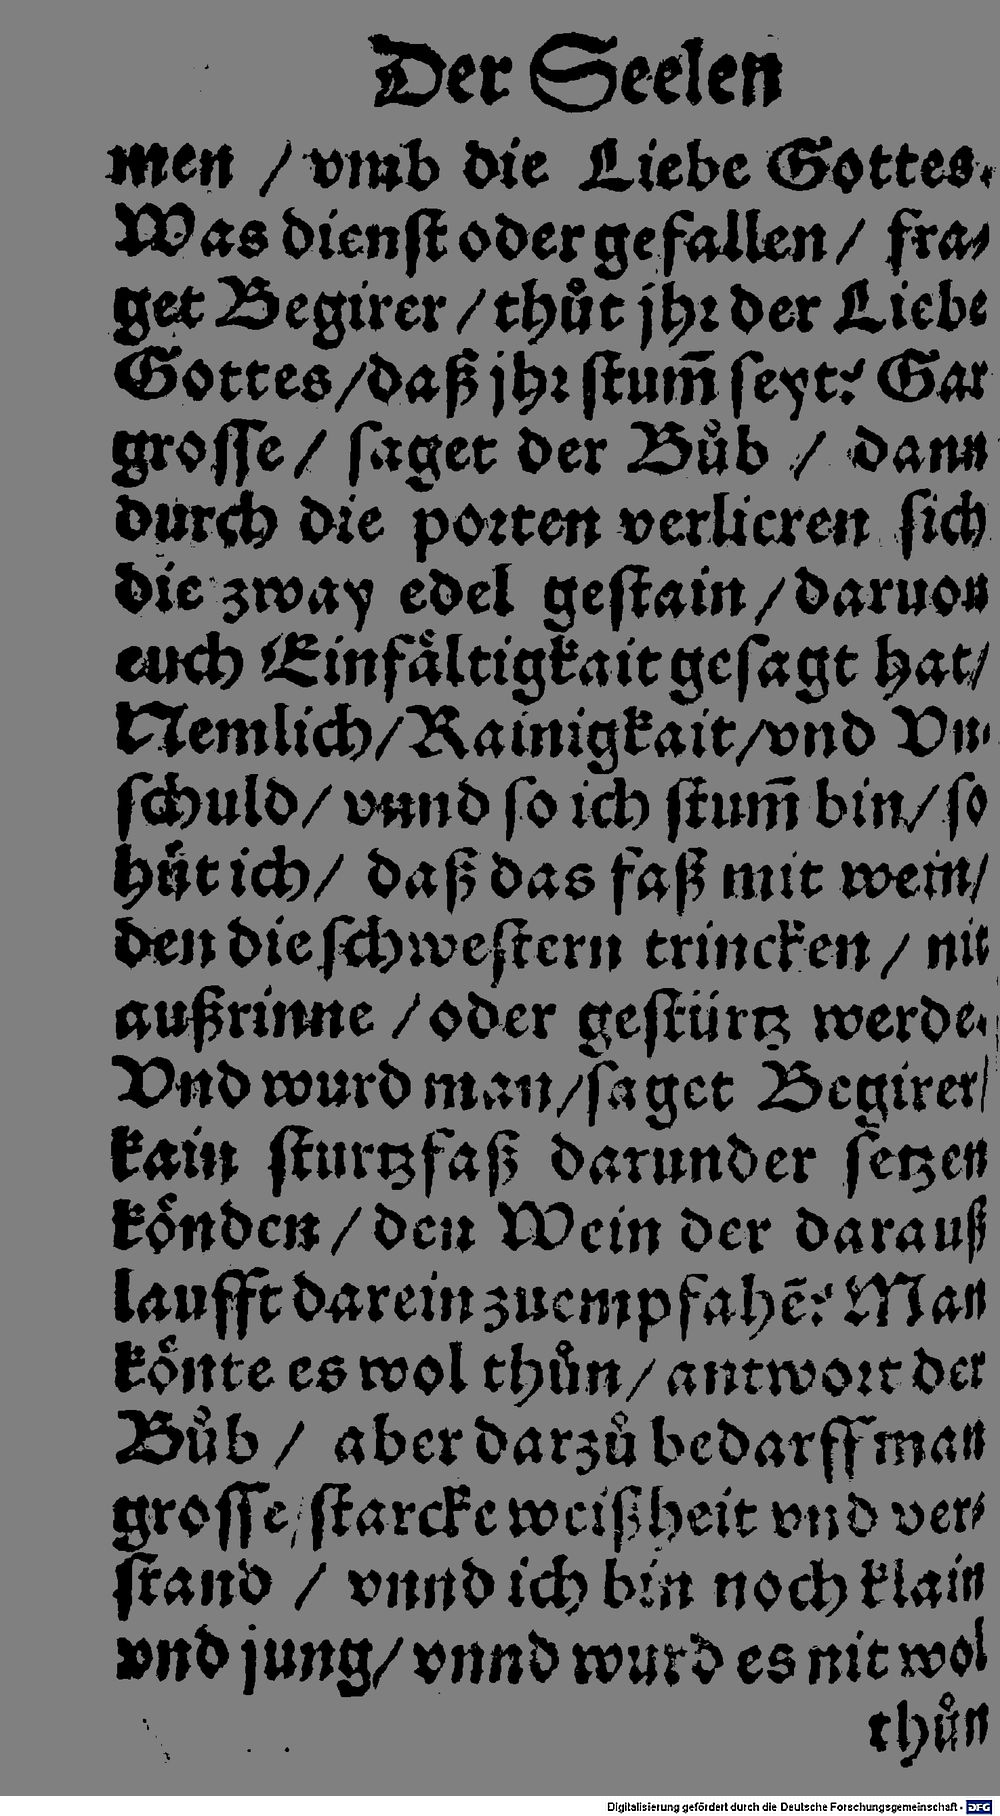 Der Seelen
men / vmb die Liebe Gottes.
Was dienſt oder gefallen / fra⸗
get Begirer / thůt jhꝛ der Liebe
Gottes / daß jhꝛ ſtum̃ ſeyt? Gar
groſſe / ſaget der Bůb / dann
durch die poꝛten verlieren ſich
die zway edel geſtain / daruon
euch Einfaͤltigkait geſagt hat /
Nemlich / Rainigkait / vnd Vn⸗
ſchuld / vnnd ſo ich ſtum̃ bin / ſo
huͤt ich / daß das faß mit wein /
den die ſchweſtern trincken / nit
außrinne / oder geſtürtz werde.
Vnd wurd man / ſaget Begirer /
kain ſturtzfaß darunder ſetzen
koͤnden / den Wein der darauß
laufft darein zuempfahẽ? Man
koͤnte es wol thůn / antwoꝛt der
Bůb / aber darzů bedarff man
groſſe / ſtarcke weißheit vnd ver⸗
ſtand / vnnd ich bin noch klain
vnd jung / vnnd wurd es nit wol
thůn
Digitalisierung gefördert durch die Deutsche Forschungsgemeinschaft - DFG